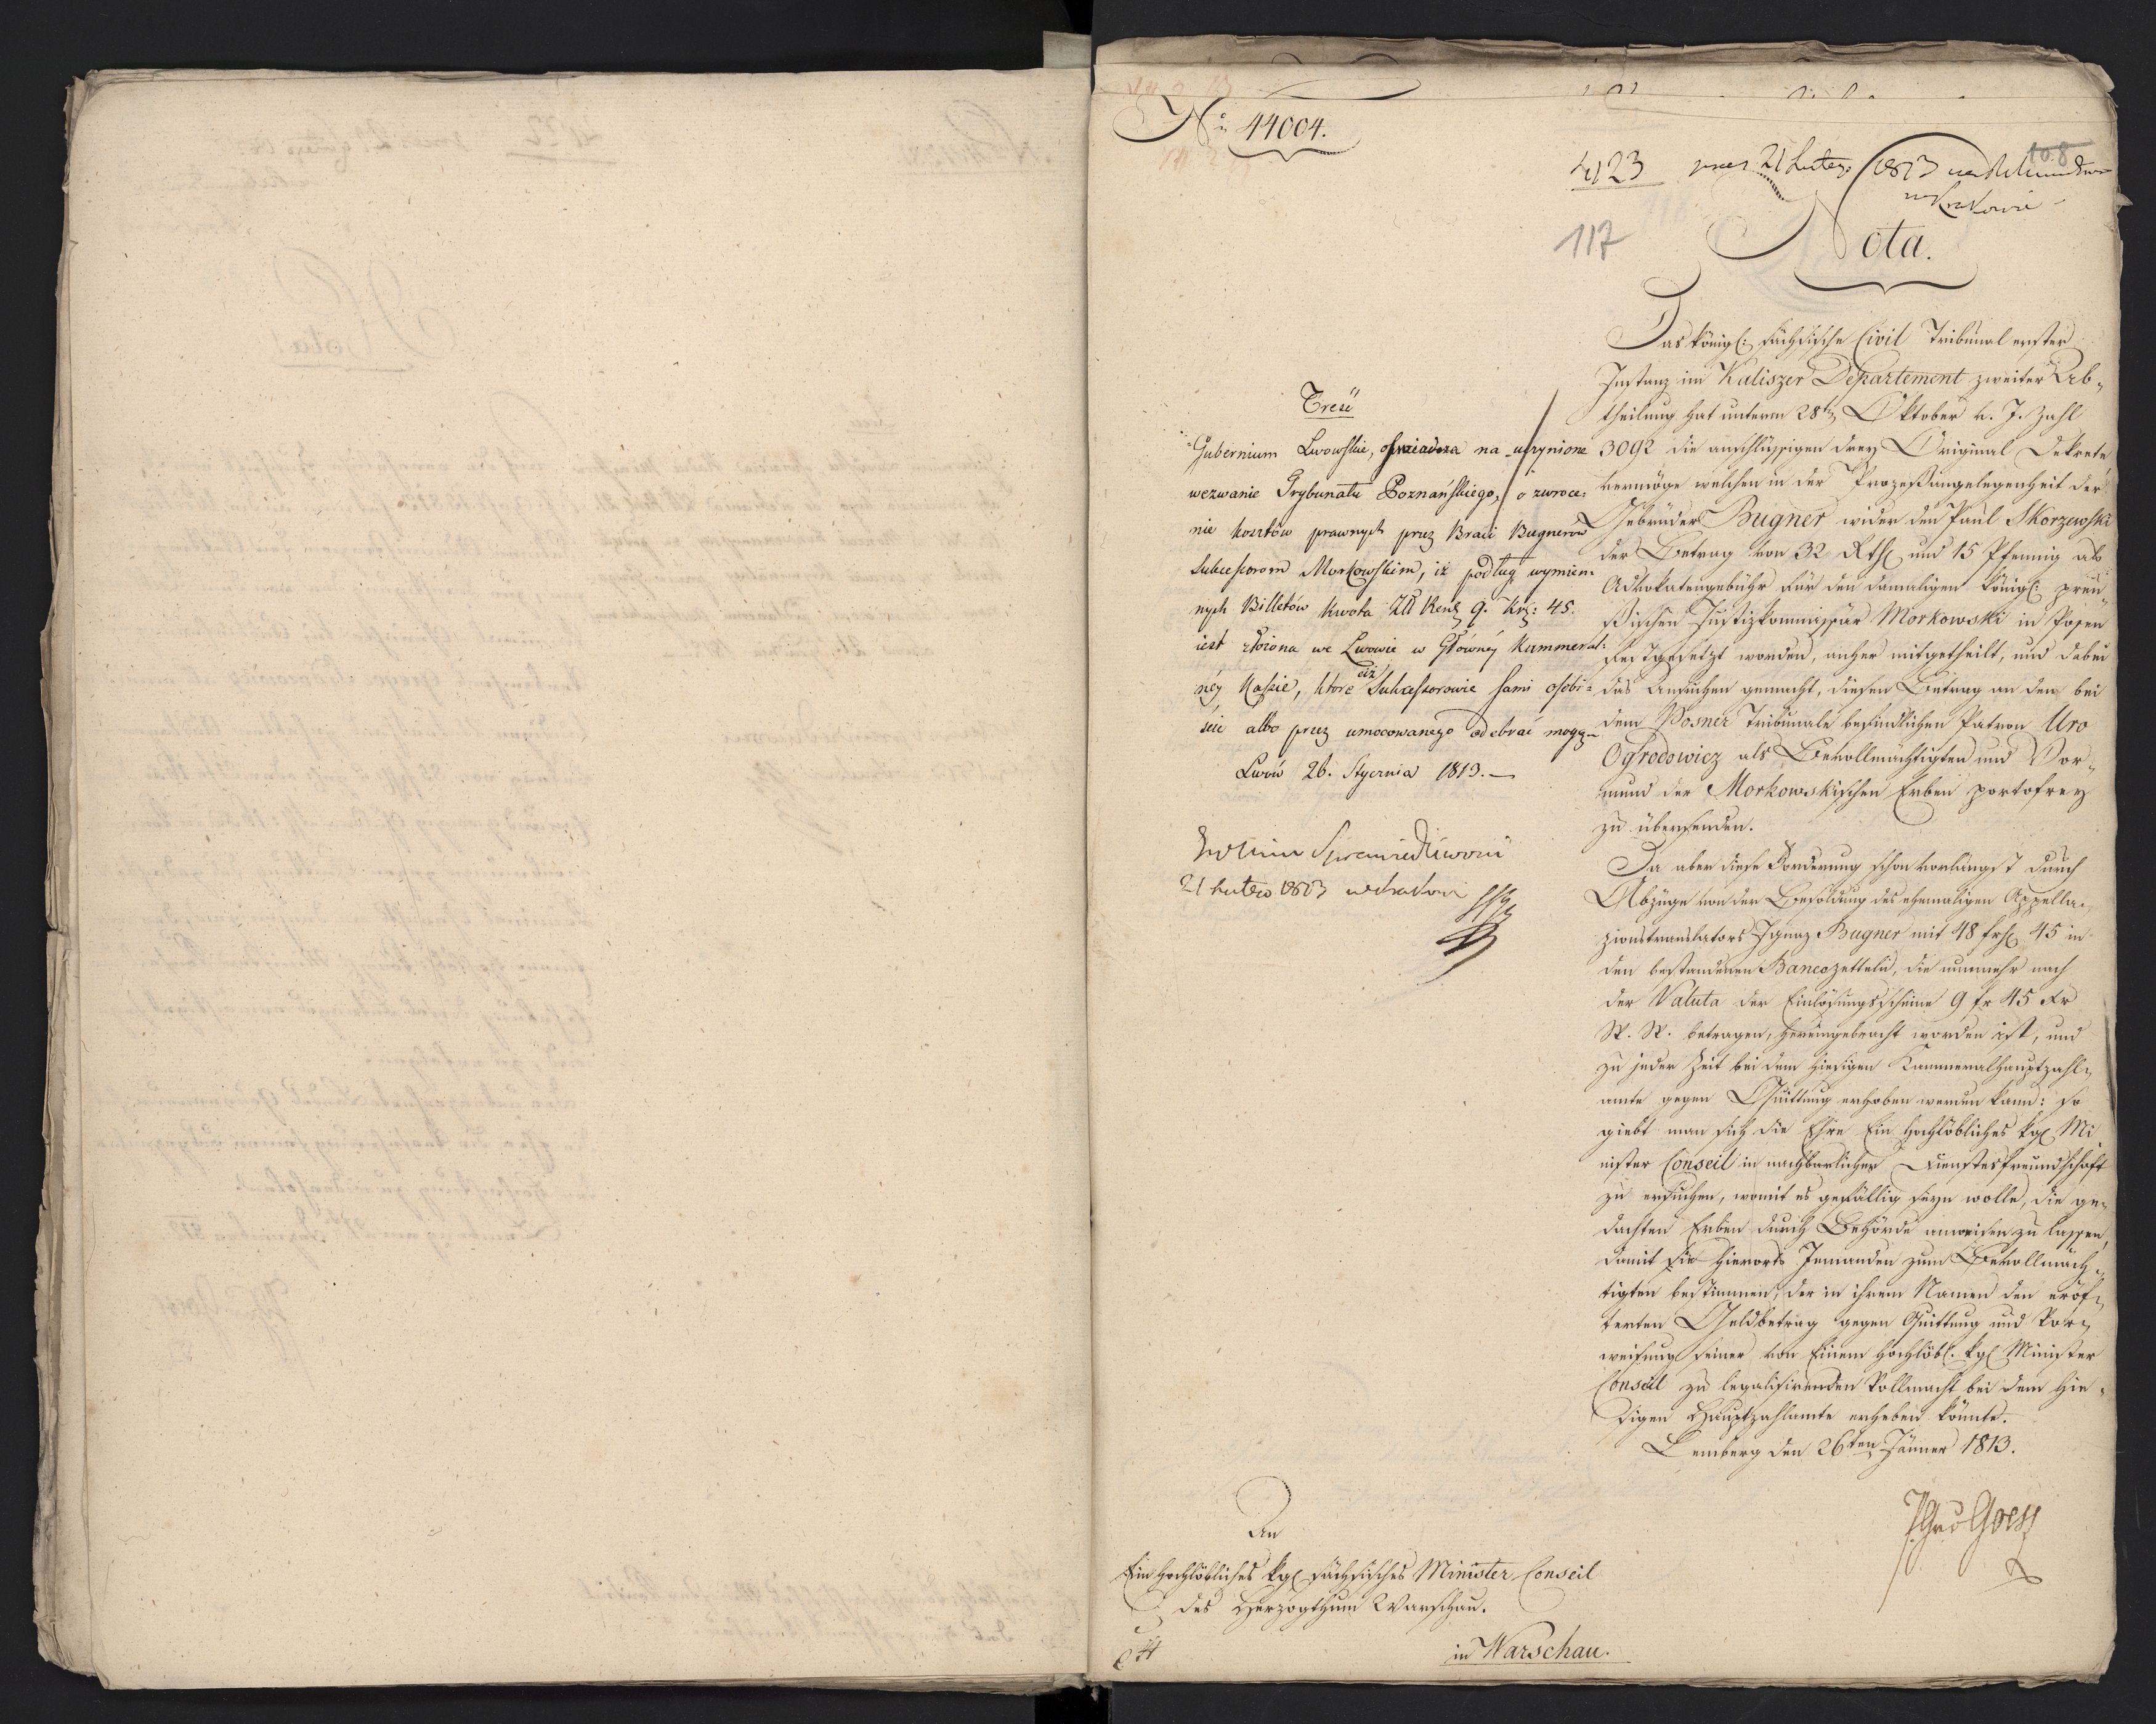 No 44004.
108
4123 praes 21 Lutego 1813 w Krakowie
117
Nota.
Treść
Gubernium Lwowskie, oświadcza na uczynione
wezwanie Trybunału Poznańskiego, o zwroce-
nie kosztów prawnych przez Braci Bugnerów
Sukcessorom Morkowskim, iż podług wymien-
nych Billetów kwota Zł Reńs 9. Krz: 45.
iest złożona we Lwowie w Głównéy Kammeral-
néy Kassie, które ciż Sukcessorowie sami osobi-
ście albo przez umocowanego odebrać mogą.—
Lwów 26. Stycznia 1813.—
Sprawiedliwości
21 Lutego 1813 w Krakowie
Das königl: sächsische Civil Tribunal erster
Instanz im Kaliszer Departement zweiter Ab-
theilung hat unterm 28ten Oktober v. J. Zahl
3092 die anschlüssigen drey Original Dekrete
vermöge welchen in der Prozeßangelegenheit der
Gebrüder Bugner wider den Paul Skorzewski
der Betrag von 32 Rth und 15 Pfennig als
Advokatengebühr für den damaligen königl: preu-
ßischen Justizkommissär Morkowski in Posen
festgesetzt worden, anher mitgetheilt, und dabei
das Ansuchen gemacht, diesen Betrag an den bei
dem Posner Tribunale befindlichen Patron Uro
Ogrodowicz als Bevollmächtigten und Vor-
mund der Morkowskischen Erben portofrey
zu übersenden.
Da aber diese Forderung schon vorlängst durch
Abzüge von der Besoldung des ehemaligen Appella-
zionstranslators Ignaz Bugner mit 48 fr 45 in
den bestandenen Bancozetteln, die nunmehr nach
der Valuta der Einlösungsscheine 9 fr 45 xr
W. W. betragen, hereingebracht worden ist, und
zu jeder Zeit bei dem hiesigen Kammeralhauptzahl-
amte gegen Quittung erhoben werden kann: so
giebt man sich die Ehre Ein hochlöbliches kgl Mi
nister Conseil in nachbarlicher Dienstesfreundschaft
zu ersuchen, womit es gefällig seyn wolle, die ge-
dachten Erben durch Behörde anweisen zu lassen,
damit sie hierorts Jemanden zum Bevollmäch-
tigten bestimmen, der in ihrem Namen den erör-
terten Geldbetrag gegen Quittung und Vor-
weisung seiner von Einem hochlöbl. kgl Minister
Conseil zu legalisirenden Vollmacht bei dem hie-
sigen Hauptzahlamte erheben könnte.
Lemberg den 26ten Jänner 1813.
Goess
An
Ein hochlöbliches kgl sächsisches Minister Conseil
des Herzogthum Warschau.
in Warschau.